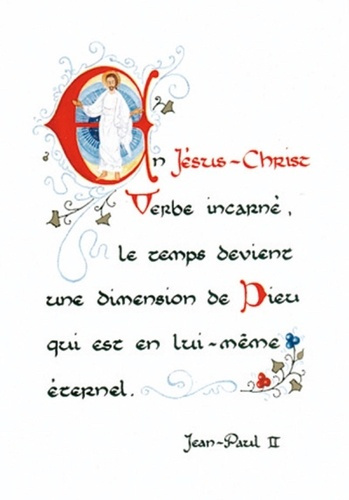 En Jésus-Christ
Verbe incarné,
le temps devient
une dimension de Dieu
qui est en lui-même
éternel.
Jean-Paul II